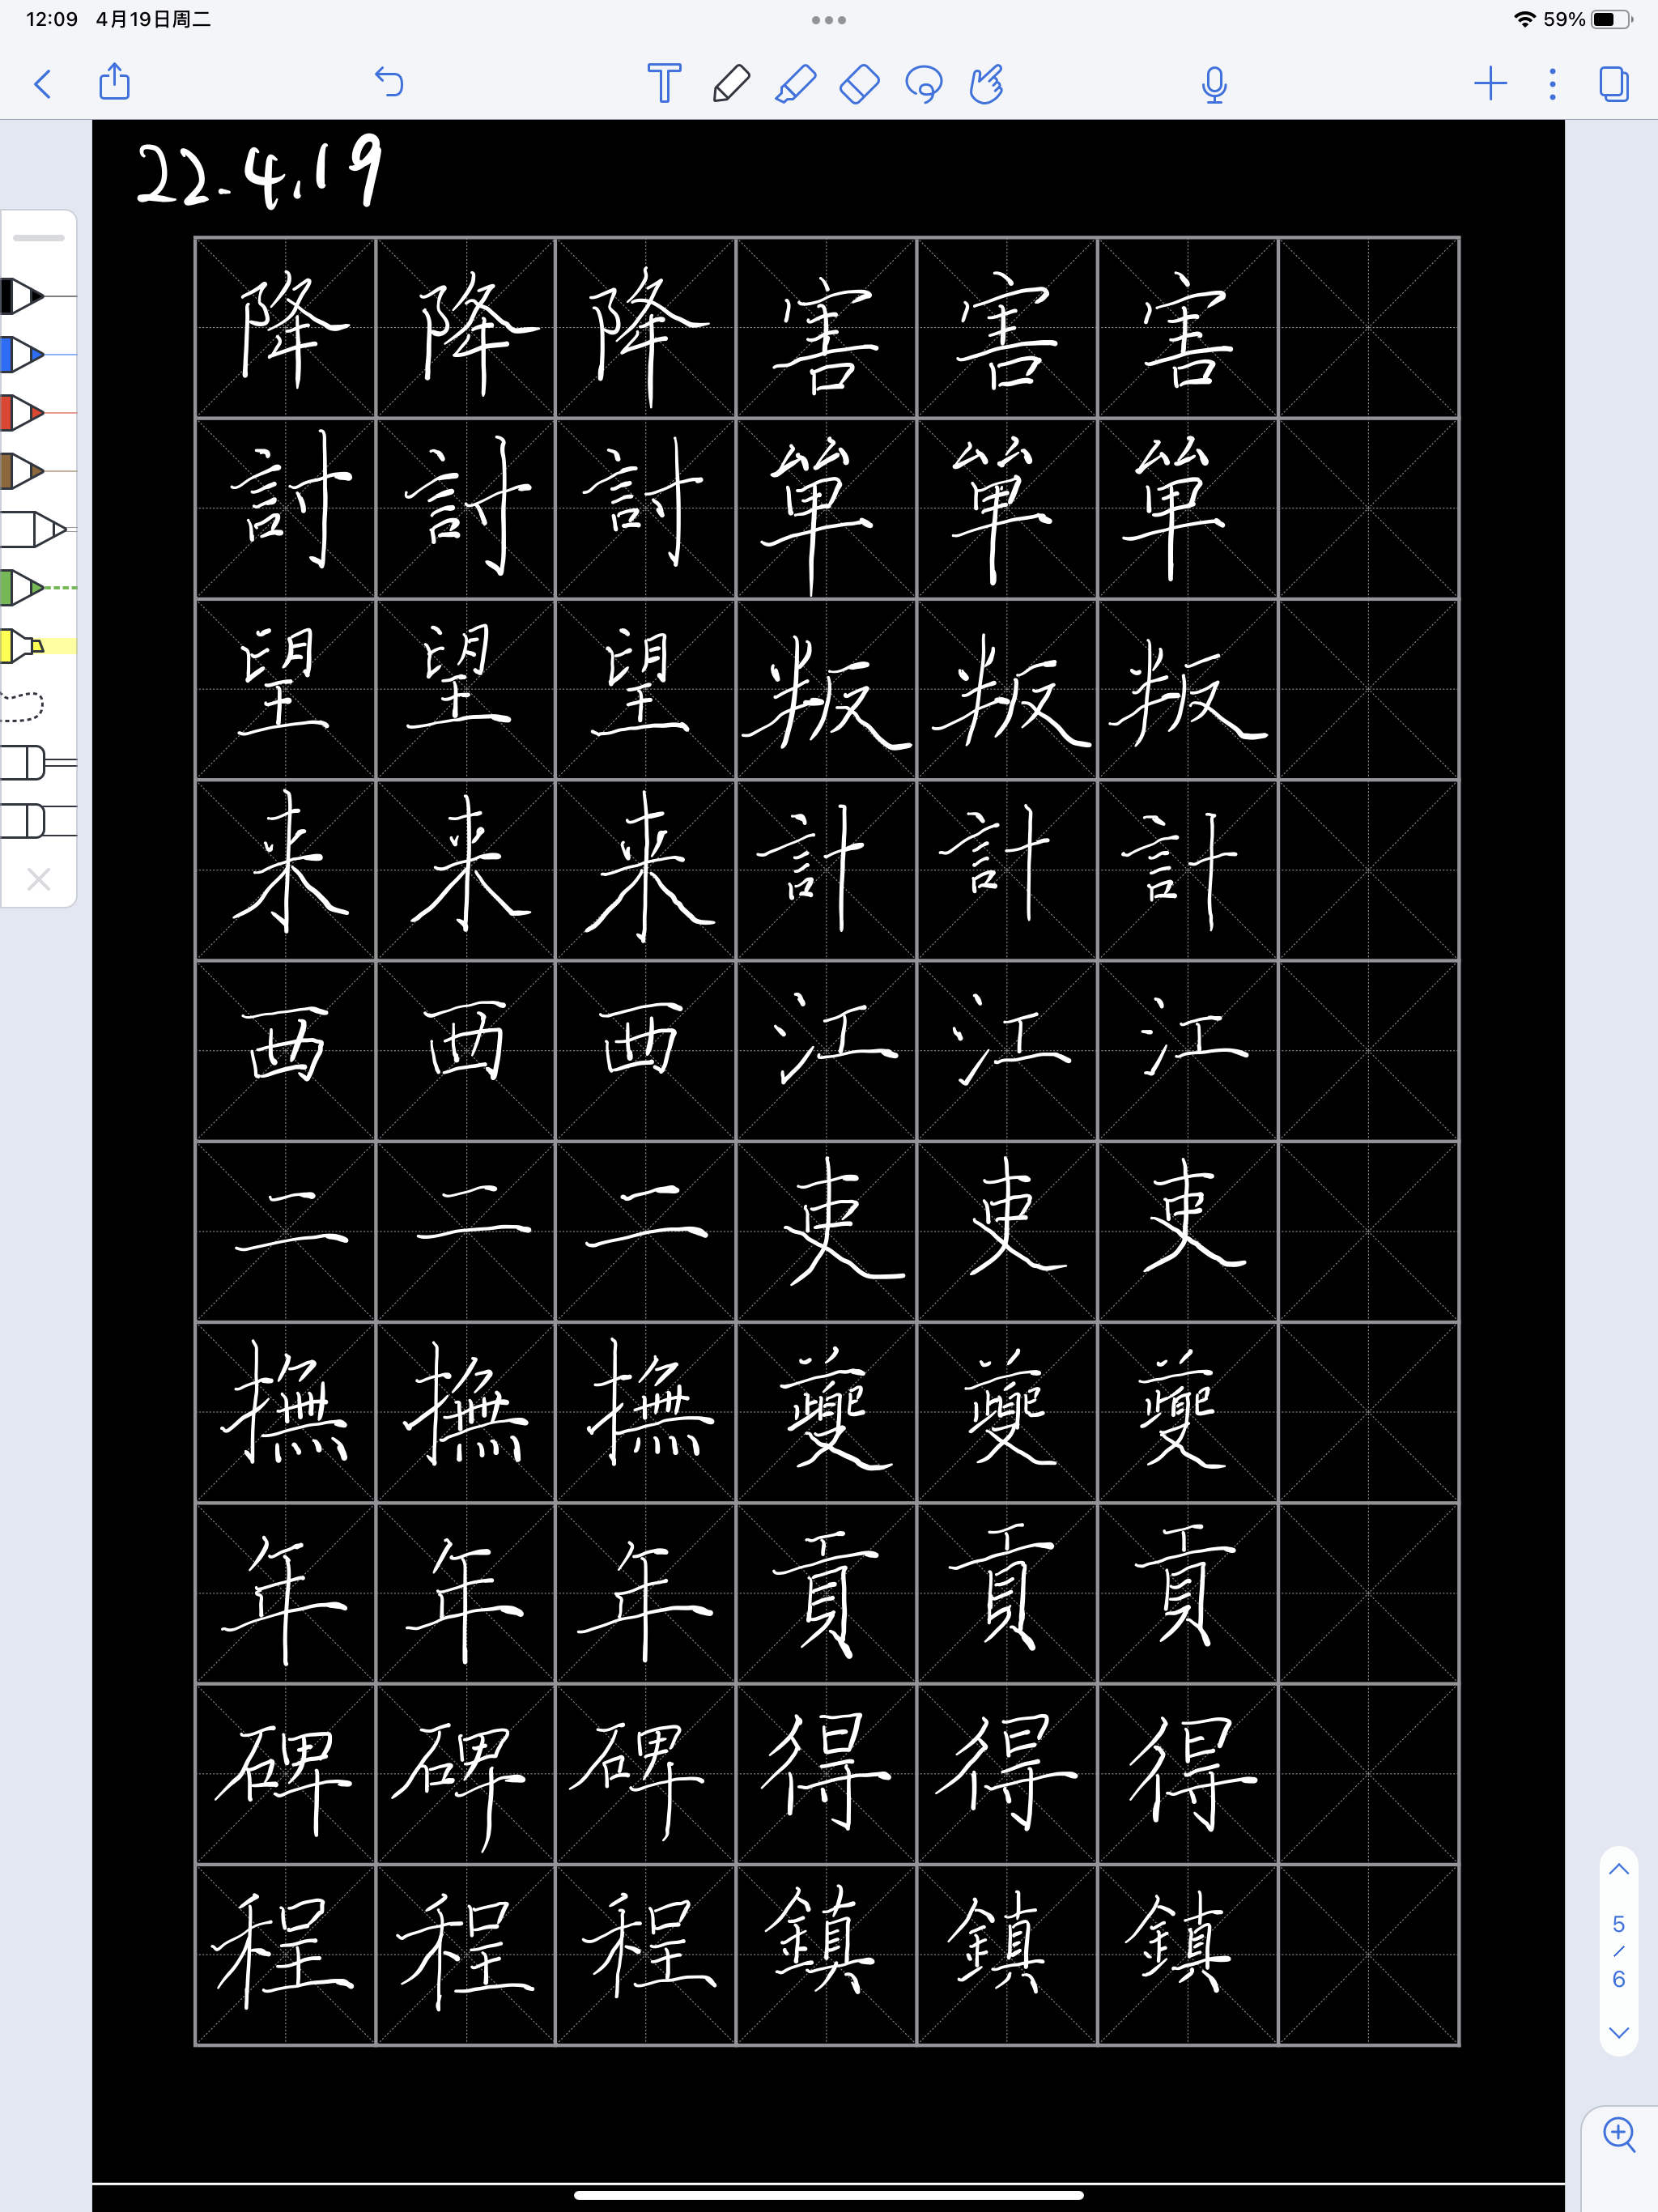 12:09 4月19日周二 59%
22.4.19
降降降害害害
討討討單單單
望望望叛叛叛
来来来計計計
西西西江江江
二二二吏吏吏
撫撫撫夔夔夔
年年年貢貢貢
碑碑碑得得得
程程程鎮鎮鎮
5/6